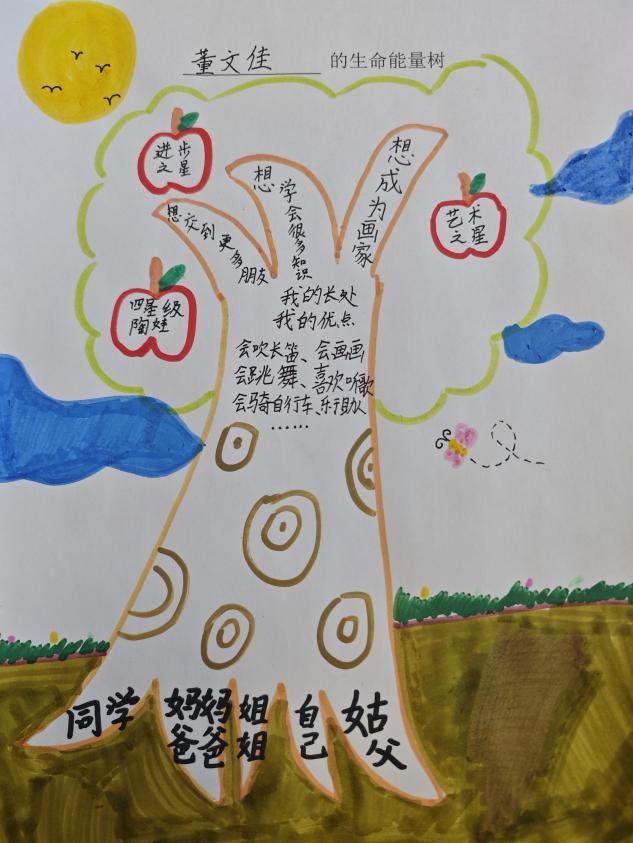 董文佳 的生命能量树
进步
之星
想交到更多朋友
想学会很多知识
想成为画家
艺术
之星
四星级
陶娃
我的长处
我的优点
会吹长笛、会画画
会跳舞、喜欢唱歌
会骑自行车、乐于助人
……
同学
妈妈
爸爸
姐姐
自己
姑父